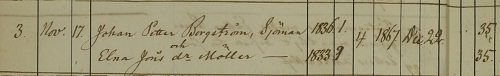 3. Nov. 17. Johan Petter Borgström, Sjöman 1836.1. 4. 1867 Dec 29. 35,
och
Elna Jöns dr Möller — 1833.9 35.